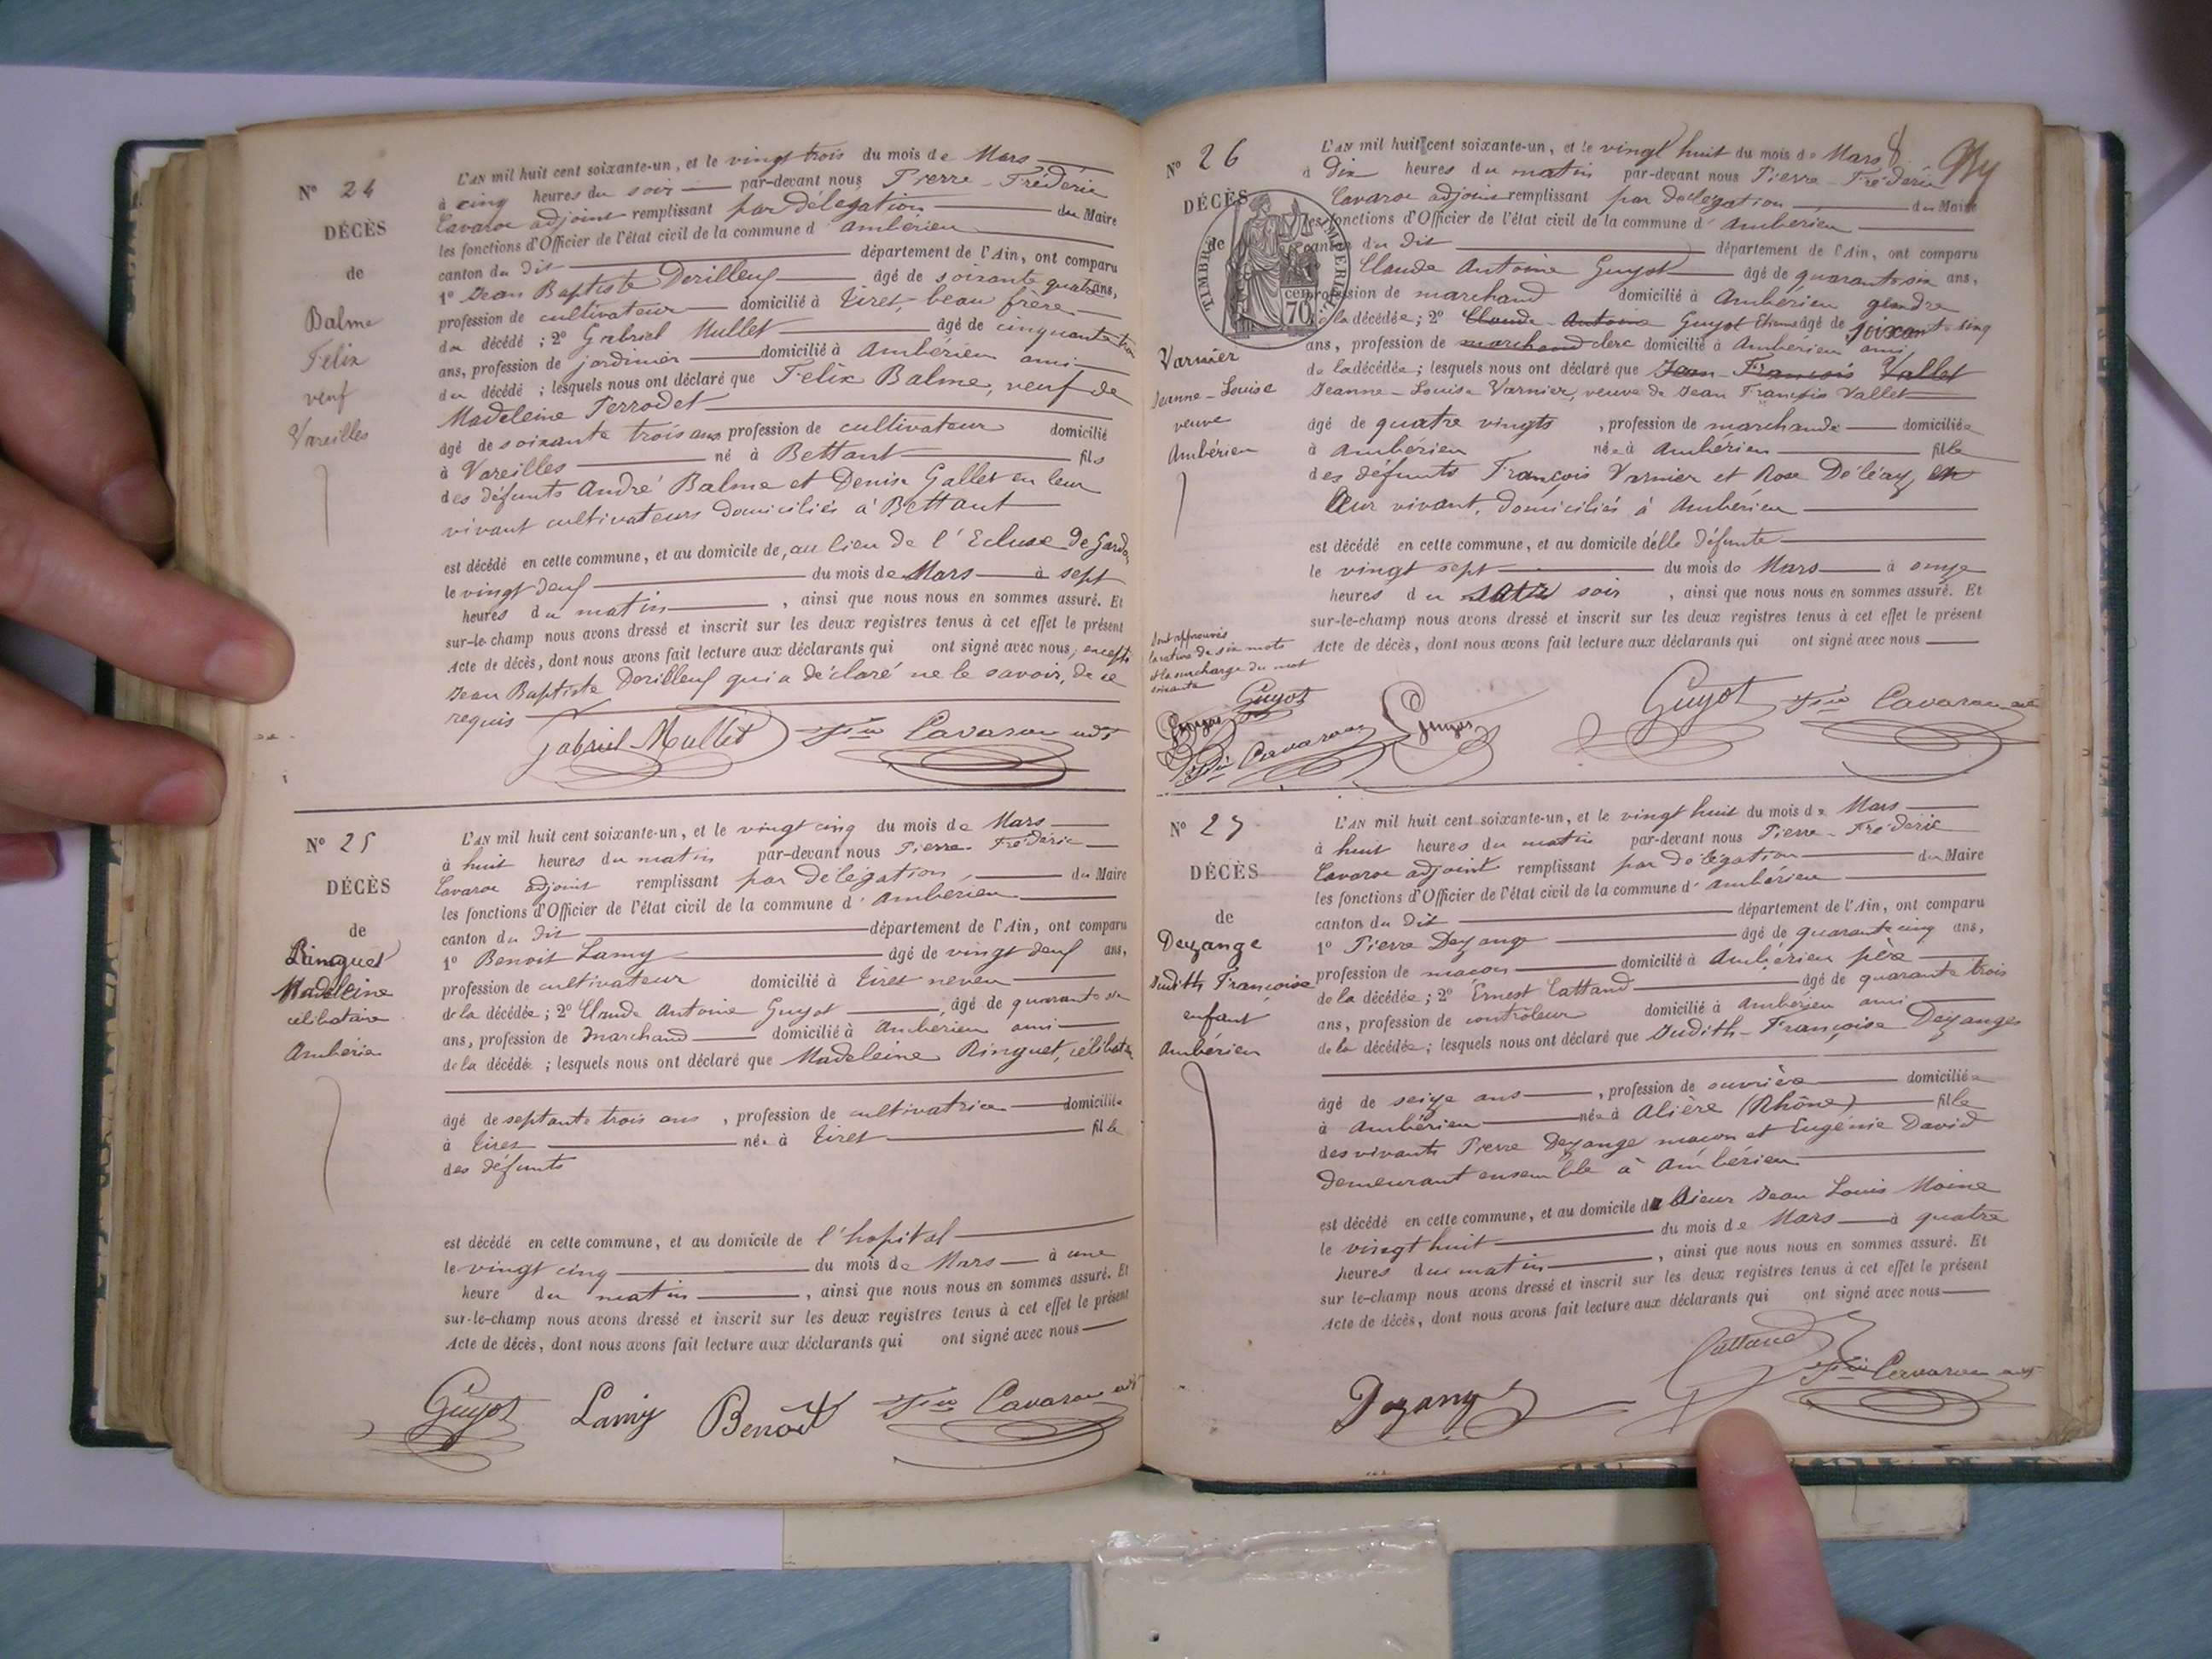 N° 24
DÉCÈS
de
Balme
Felix
veuf
Vareilles
L'AN mil huit cent soixante-un, et le vingt trois du mois de Mars
à cinq heures du soir par-devant nous Pierre-Fréderic
Cavarox adjoint remplissant par délégation du Maire
les fonctions d'Officier de l'état civil de la commune d'Ambérieu
canton du dit département de l'Ain, ont comparu
1° Jean Baptiste Derilleuf âgé de soixante quatre ans,
profession de cultivateur domicilié à Tiret, beau frère
du décédé ; 2° Gabriel Mullet âgé de cinquante trois
ans, profession de jardinier domicilié à Ambérieu ami
du décédé ; lesquels nous ont déclaré que Félix Balme, veuf de
Madeleine Perrodet
âgé de soixante trois ans profession de cultivateur domicilié
à Vareilles né à Bettant fils
des défunts André Balme et Denise Gallet en leur
vivant cultivateurs domiciliés à Bettant
est décédé en cette commune, et au domicile de, au lieu de l'Ecluse de Gardon
le vingt deux du mois de Mars à sept
heures du matin, ainsi que nous nous en sommes assuré. Et
sur-le-champ nous avons dressé et inscrit sur les deux registres tenus à cet effet le présent
Acte de décès, dont nous avons fait lecture aux déclarants qui ont signé avec nous, excepté
Jean Baptiste Derilleuf qui a déclaré ne le savoir, de ce
requis
Gabriel Mullet Cavarox adt
N° 25
DÉCÈS
de
Ringuet
Madeleine
célibataire
Ambérieu
L'AN mil huit cent soixante-un, et le vingt cinq du mois de Mars
à huit heures du matin par-devant nous Pierre-Fréderic
Cavarox adjoint remplissant par délégation, du Maire
les fonctions d'Officier de l'état civil de la commune d'Ambérieu
canton du dit département de l'Ain, ont comparu
1° Benoit Lamy âgé de vingt neuf ans,
profession de cultivateur domicilié à Tiret neveu
de la décédée ; 2° Claude Antoine Guyot, âgé de quarante six
ans, profession de Marchand domicilié à Ambérieu ami
de la décédée ; lesquels nous ont déclaré que Madeleine Ringuet, célibataire
âgé de septante trois ans, profession de cultivatrice domiciliée
à Tiret née à Tiret fille
des défunts
est décédé en cette commune, et au domicile de l'hopital
le vingt cinq du mois de Mars à une
heure du matin, ainsi que nous nous en sommes assuré. Et
sur-le-champ nous avons dressé et inscrit sur les deux registres tenus à cet effet le présent
Acte de décès, dont nous avons fait lecture aux déclarants qui ont signé avec nous
Guyot Lamy Benoit Cavarox adt
N° 26
DÉCÈS
de
TIMBRE IMPÉRIAL
70 cen
Varnier
Jeanne-Louise
veuve
Ambérieu
L'AN mil huit cent soixante-un, et le vingt huit du mois de Mars
à Dix heures du matin par-devant nous Pierre-Fréderic
Cavarox adjoint remplissant par délégation du Maire
les fonctions d'Officier de l'état civil de la commune d'Ambérieu
canton du dit département de l'Ain, ont comparu
1° Claude Antoine Guyot âgé de quarante six ans,
profession de marchand domicilié à Ambérieu gendre
de la décédée ; 2° Claude-Antoine Guyot Etienne âgé de soixante cinq
ans, profession de marchand clerc domicilié à Ambérieu ami
de la décédée ; lesquels nous ont déclaré que Jean-François Vallet
Jeanne-Louise Varnier, veuve de Jean François Vallet
âgé de quatre vingts, profession de marchande domiciliée
à Ambérieu née à Ambérieu fille
des défunts François Varnier et Rose Déléaz, en
leur vivant, domiciliés à Ambérieu
est décédé en cette commune, et au domicile d'elle défunte
le vingt sept du mois de Mars à onze
heures du soir, ainsi que nous nous en sommes assuré. Et
sur-le-champ nous avons dressé et inscrit sur les deux registres tenus à cet effet le présent
Acte de décès, dont nous avons fait lecture aux déclarants qui ont signé avec nous
Sont approuvés
la rature de six mots
et la surcharge du mot
soixante
Guyot
Cavarox
Guyot Cavarox adt
N° 27
DÉCÈS
de
Dezange
Judith Françoise
enfant
Ambérieu
L'AN mil huit cent soixante-un, et le vingt huit du mois de Mars
à huit heures du matin par-devant nous Pierre-Fréderic
Cavarox adjoint remplissant par délégation du Maire
les fonctions d'Officier de l'état civil de la commune d'Ambérieu
canton du dit département de l'Ain, ont comparu
1° Pierre Dezange âgé de quarante cinq ans,
profession de maçon domicilié à Ambérieu père
de la décédée ; 2° Ernest Cattaud âgé de quarante trois
ans, profession de contrôleur domicilié à Ambérieu ami
de la décédée ; lesquels nous ont déclaré que Judith-Françoise Dezanges
âgé de seize ans, profession de ouvrière domiciliée
à Ambérieu née à Alière (Rhône) fille
des vivants Pierre Dezange maçon et Eugénie David
demeurant ensemble à Ambérieu
est décédé en cette commune, et au domicile du sieur Jean Louis Moine
le vingt huit du mois de Mars à quatre
heures du matin, ainsi que nous nous en sommes assuré. Et
sur le-champ nous avons dressé et inscrit sur les deux registres tenus à cet effet le présent
Acte de décès, dont nous avons fait lecture aux déclarants qui ont signé avec nous
Cattaud
Dezange Cavarox adt